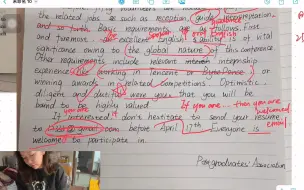 the related jobs such as reception, guide, interpretation
and so forth. Basic requirements are as follows. First
and foremost, English ability is of vital
significance owing to the global nature of this conference.
Other requirements include relevant internship
experience like working in Tencent or ByteDance) or
winning awards in related competitions. Optimistic
diligent dutiful were you that you will be
bound to be highly valued. If you are... then you are
If interested, don't hestitate to send your resume welcomed
to com before April 17th. Everyone is email
welcome to participate in.
Postgraduates' Association